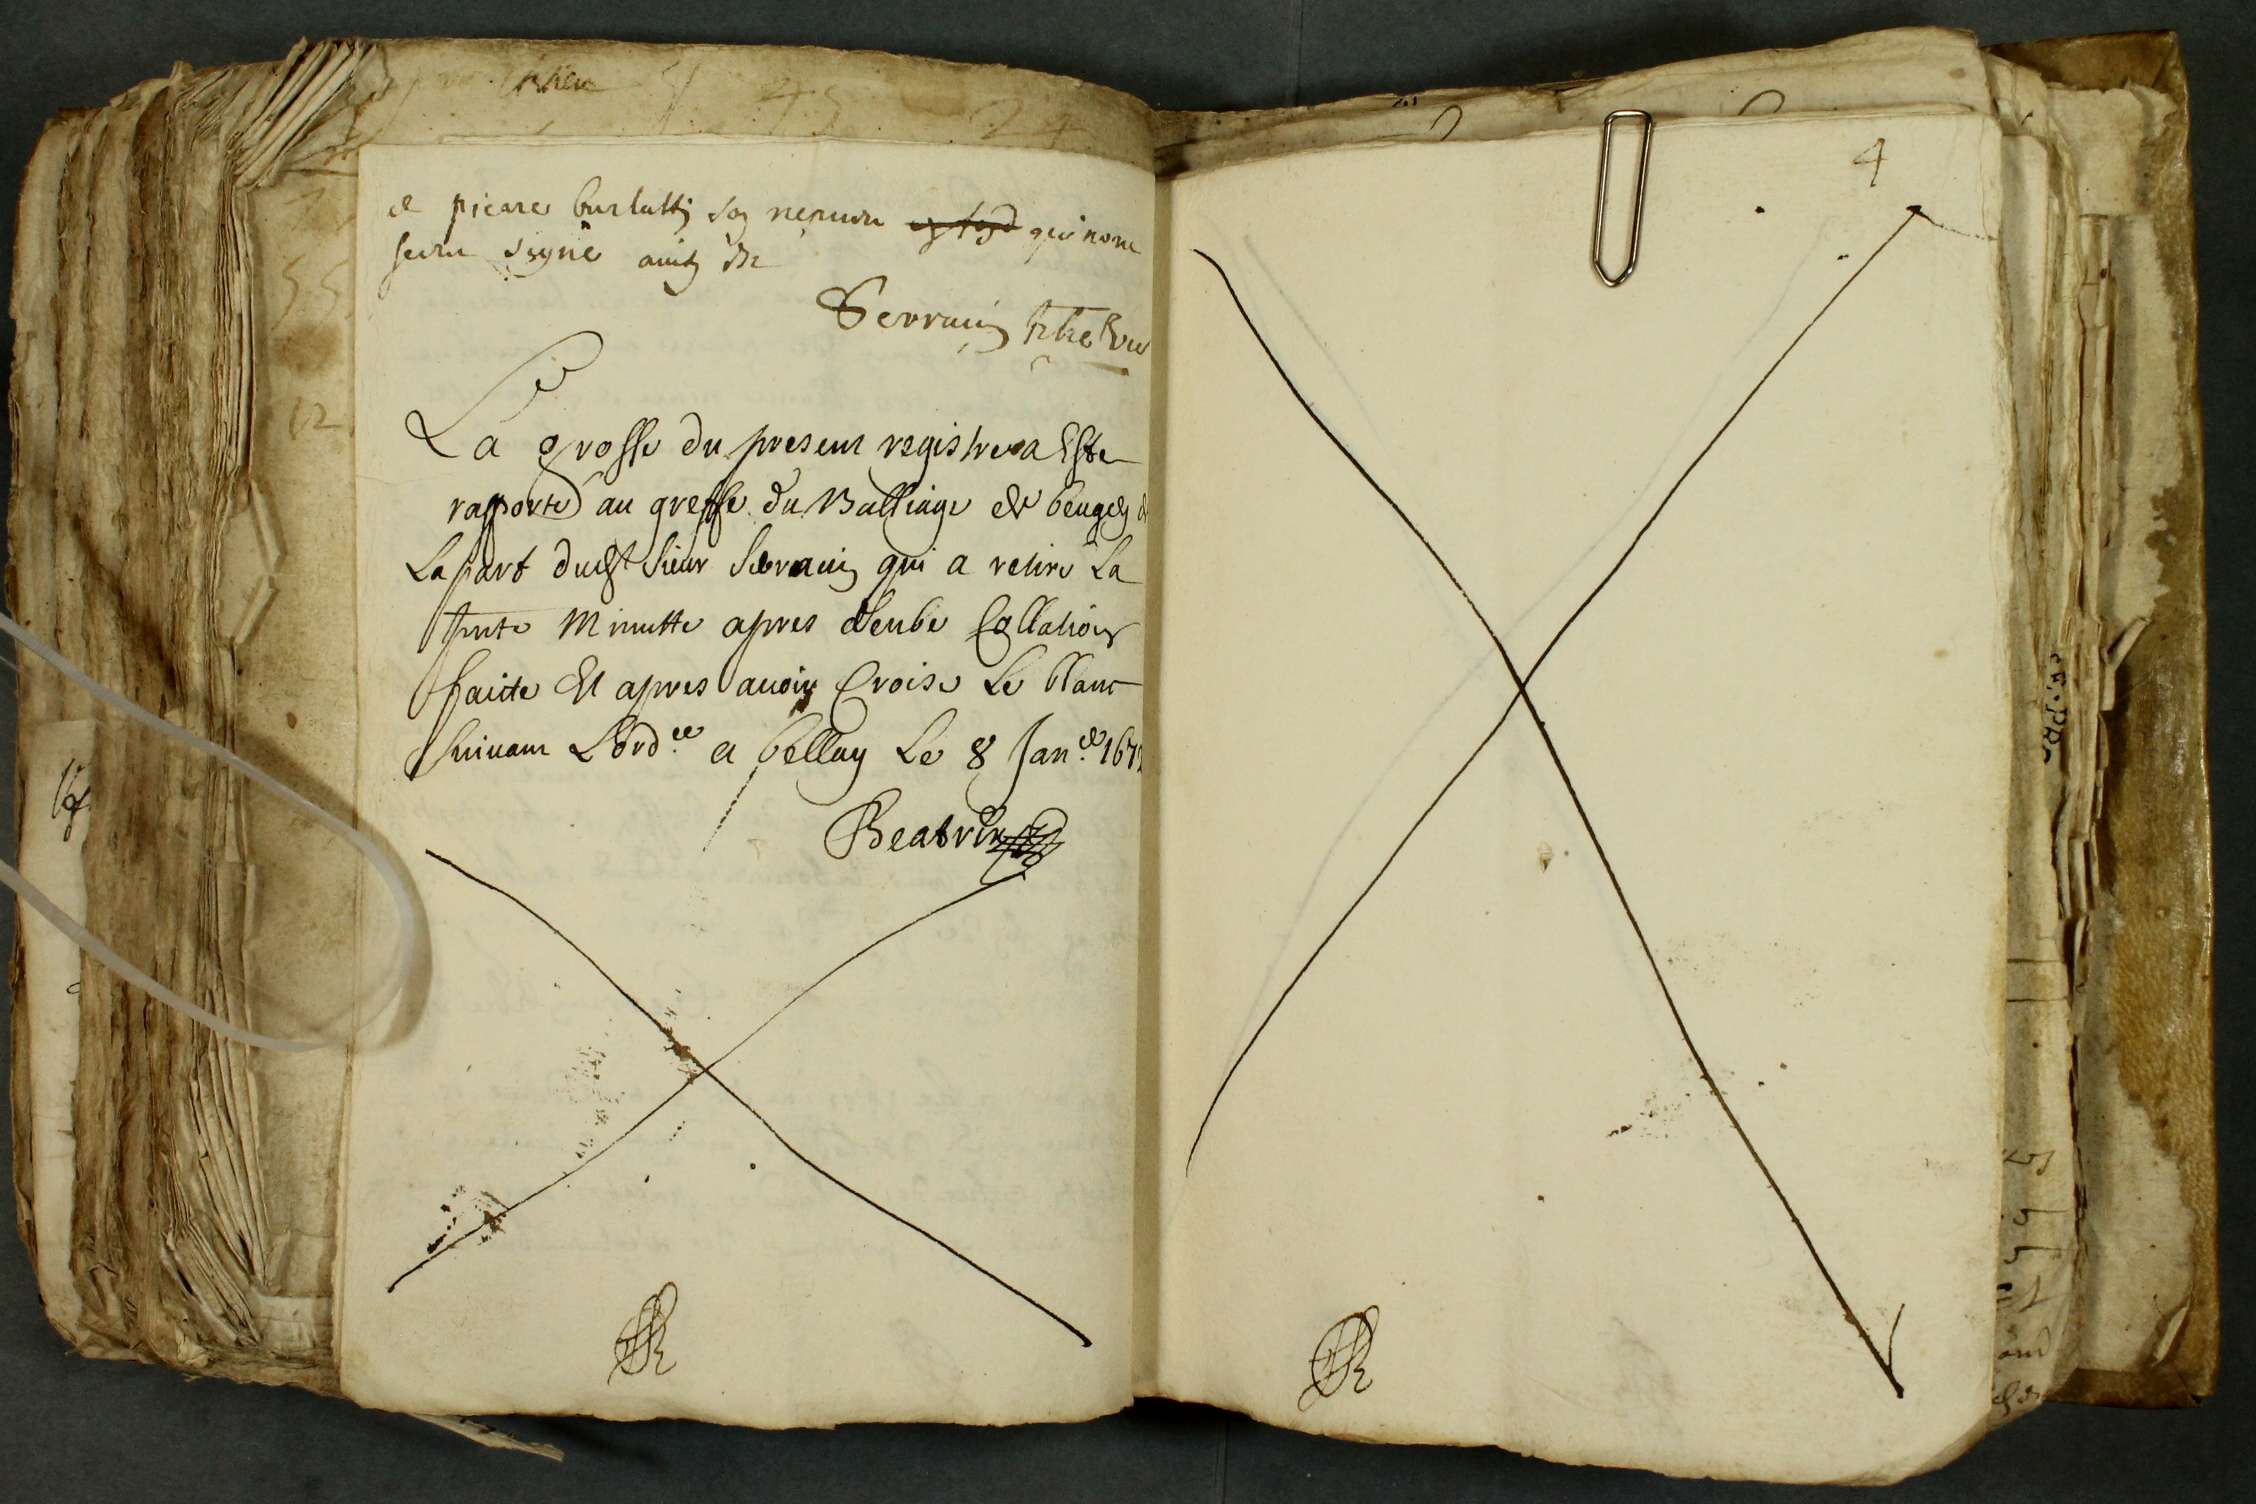 & pierre burlatti son nepueu qui nont
sceu signe
Serrain ptre Vic
La grosse du present registre a Este
rapporté au greffe du Balliage de beugey de
La part dudt sieur Serrain qui a retiré La
pnte Minutte apres deube Collation
faicte Et apres auoir Croisé Le blanc
suiuant Lord.ce a belley Le 8 Jan.er 167
Beatrix
4